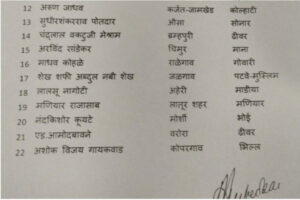 12 अरुण जाधव कर्जत-जामखेड कोल्हाटी
13 सुधीरशंकरराव पोतदार औसा सोनार
14 चंदूलाल वकटुजी मेश्राम ब्रम्हपुरी ढीवर
15 अरविंद सांडेकर चिमुर माना
16 माधव कोहळे राळेगाव गोवारी
17 शेख शफी अब्दुल नबी शेख जळगाव पटवे-मुस्लिम
18 लालसू नागोटी अहेरी माडीया
19 मणियार राजासाब लातूर शहर मणियार
20 नंदकिशोर कूयटे मोर्शी भोई
21 एड.आमोदबावने वरोरा ढीवर
22 अशोक विजय गायकवाड कोपरगाव भिल्ल